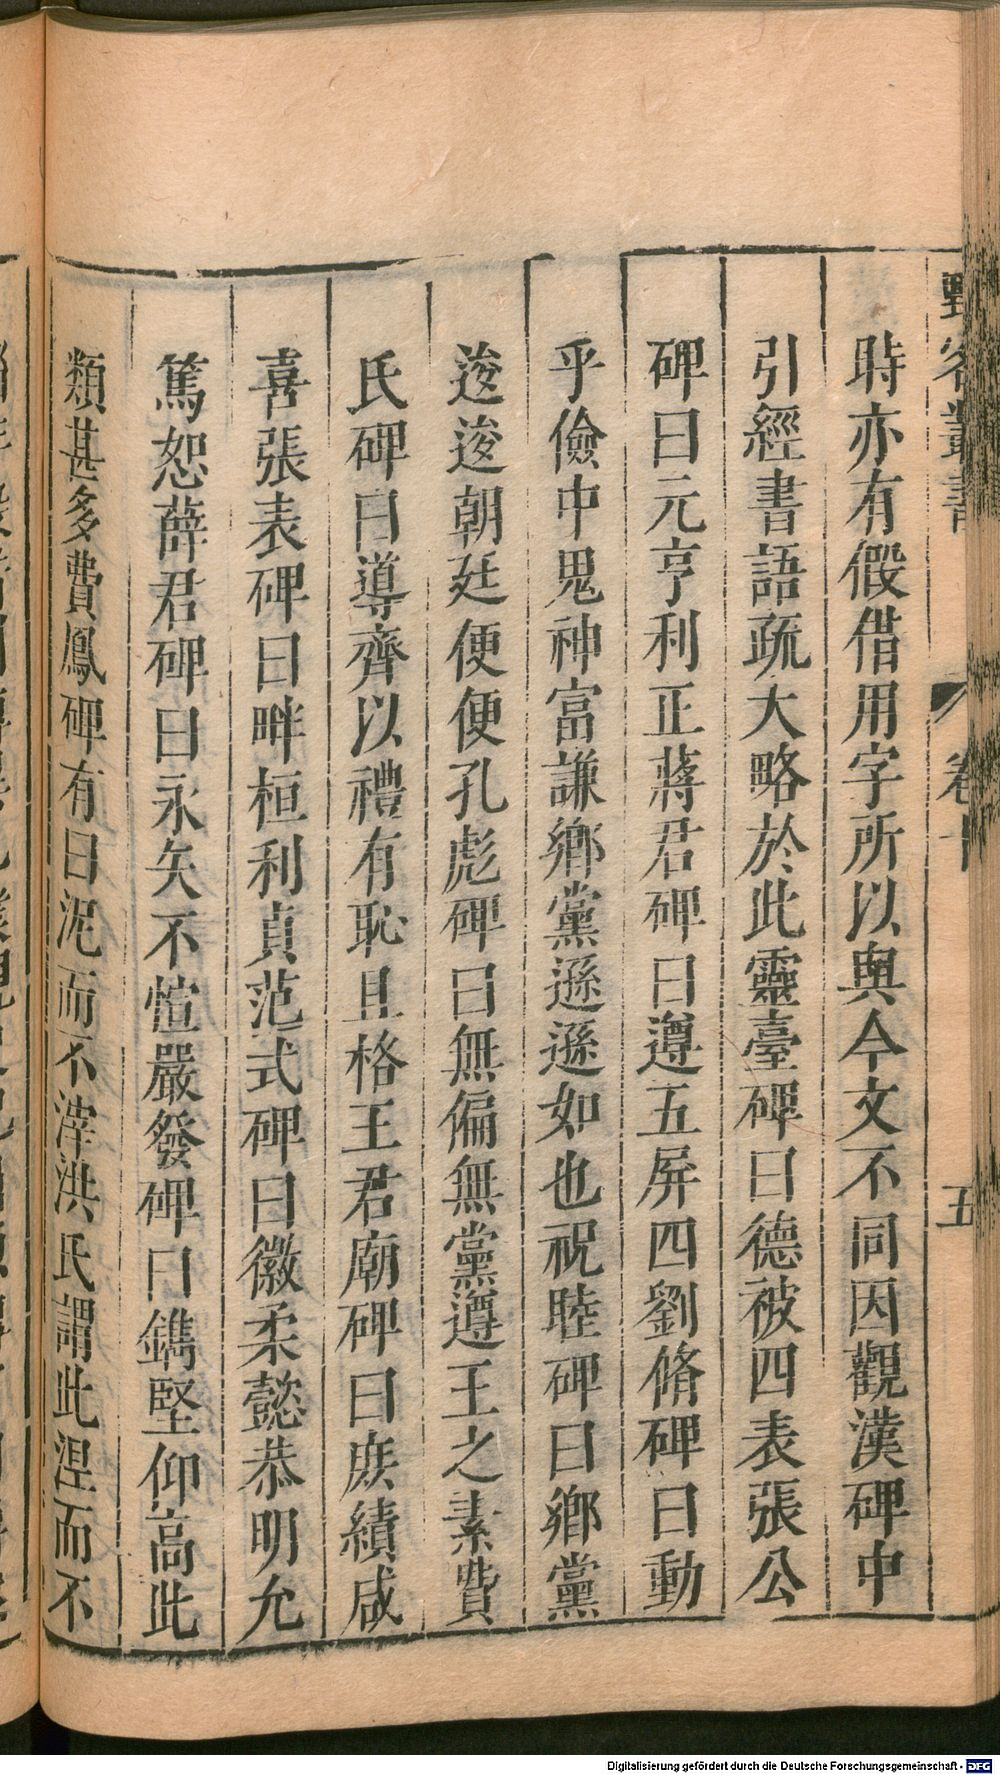 時亦有假借用字所以與今文不同因觀漢碑中
引經書語疏大略於此靈臺碑曰德被四表張公
碑曰元亨利正蔣君碑曰遵五屏四劉脩碑曰動
乎儉中鬼神富謙鄉黨遜遜如也祝睦碑曰鄉黨
逡逡朝廷便便孔彪碑曰無偏無黨遵王之素費
氏碑曰導齊以禮有恥且格王君廟碑曰庶績咸
喜張表碑曰畔桓利貞范式碑曰徽柔懿恭明允
篤恕薛君碑曰永矢不愃嚴發碑曰鐫堅仰高此
類甚多費鳳碑有曰泥而不滓洪氏謂此涅而不
卷十
五
Digitalisierung gefördert durch die Deutsche Forschungsgemeinschaft - DFG